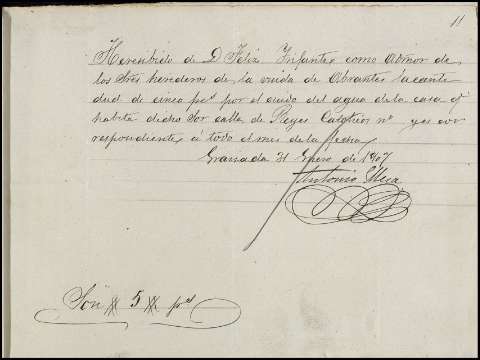 11
He recibido de D Feliz Infantes como Abmor de
los Tres herederos de la viuda de Abrantes la canti
dad de cinco pts por el cuido del agua de la casa qe
habita dicho Sor calle de Reyes Catolicos no y es cor
respondiente á todo el mes de la fecha
Granada 31 Enero de 1907
Antonio
Son # 5 # pts